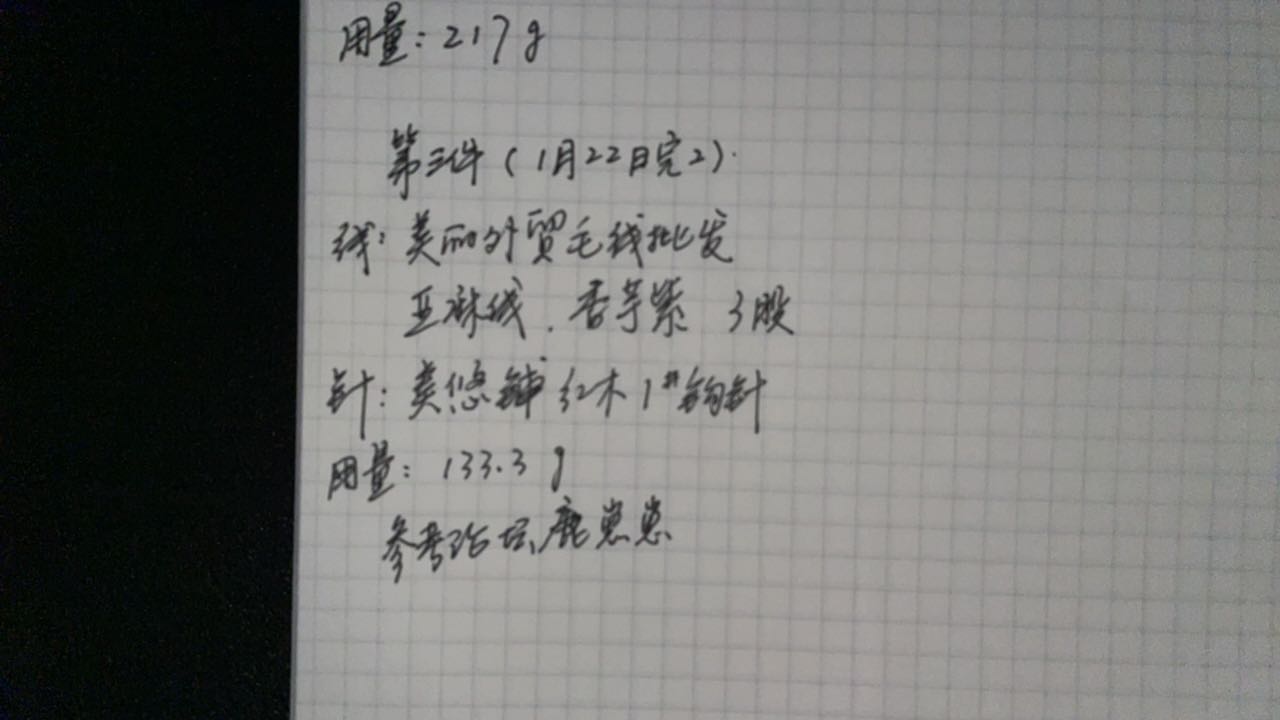 用量：217g
第三件（1月22日完工）.
线：美丽外贸毛线批发
亚麻线．香芋紫 3股
针：美悠铺 红木 1#钩针
用量：133.3g
参考 鹿崽崽